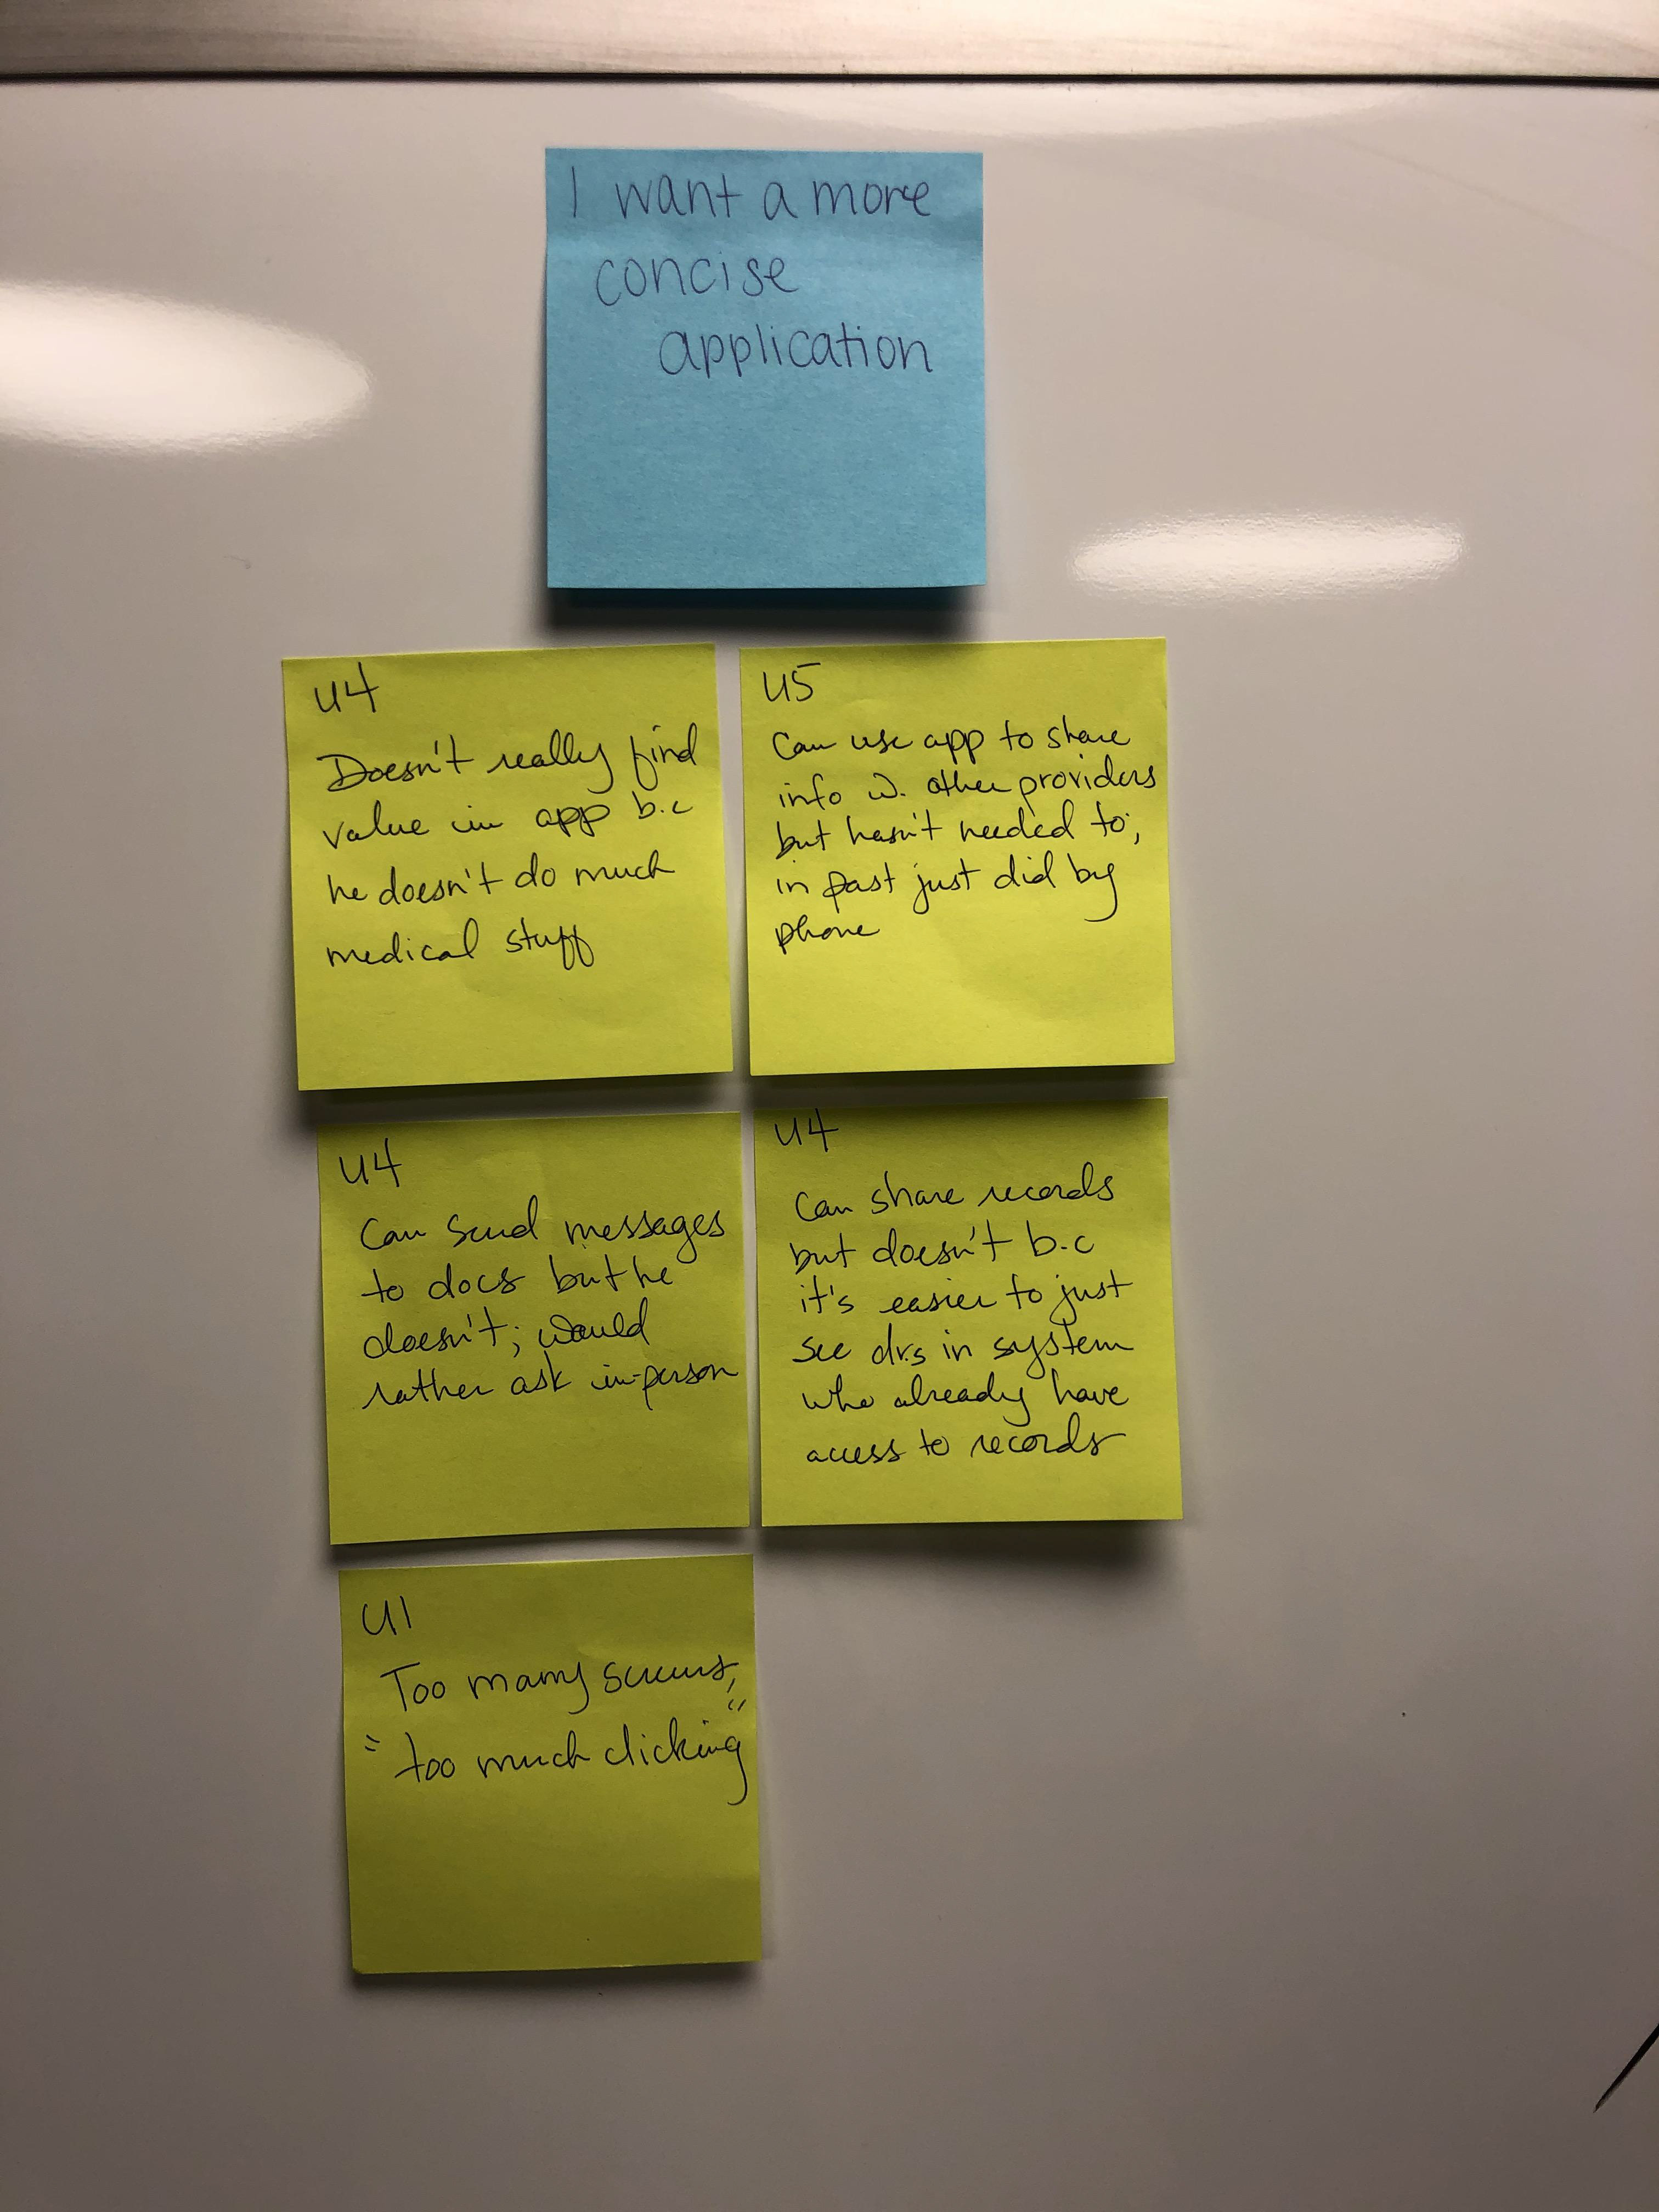 I want a more
concise
application
U4
Doesn't really find
value in app b.c
he doesn't do much
medical stuff
U5
Can use app to share
info w. other providers
but hasn't needed to;
in past just did by
phone
U4
Can send messages
to docs but he
doesn't; would
rather ask in-person
U4
Can share records
but doesn't b.c
it's easier to just
see drs in system
who already have
access to records
U1
Too many screens,
"too much clicking"